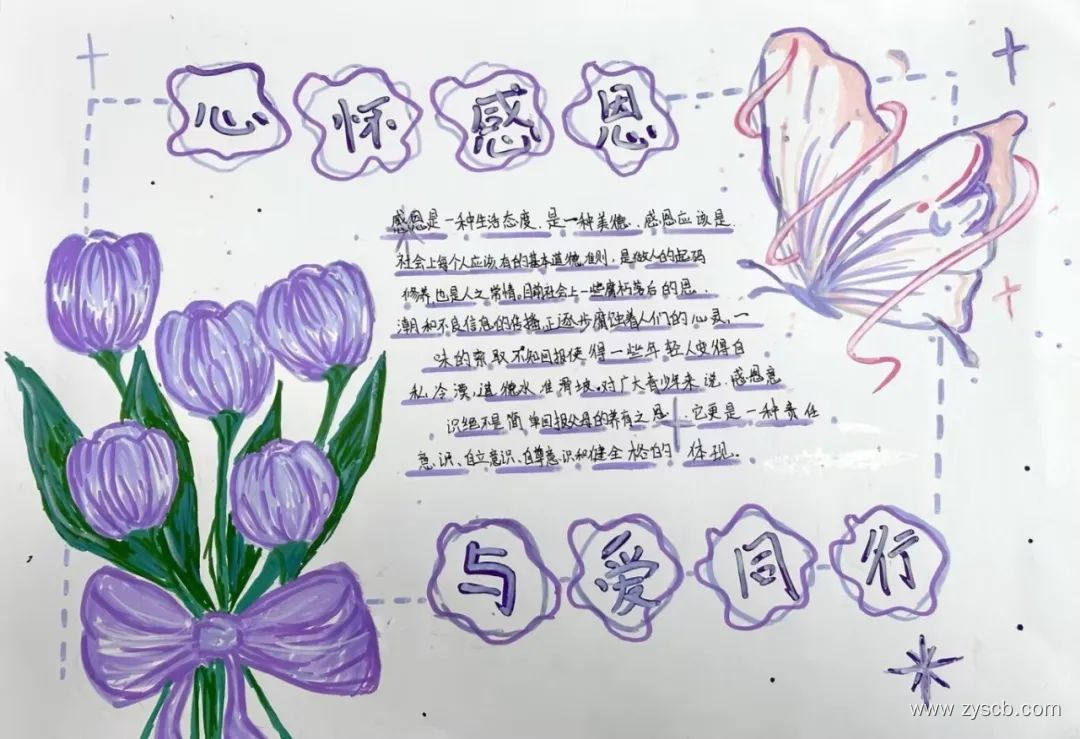 心怀感恩
感恩是一种生活态度，是一种美德，感恩应该是
社会上每个人应该有的基本道德准则，是做人的起码
修养，也是人之常情。目前社会上一些腐朽落后的思
潮和不良信息的传播，正逐步腐蚀着人们的心灵，一
味的索取不知回报使得一些年轻人变得自
私，冷漠，道德水准滑坡。对广大青少年来说，感恩意
识绝不是简单回报父母的养育之恩，它更是一种责任
意识、自立意识、自尊意识和健全格的体现。
与爱同行
www.zyscb.com